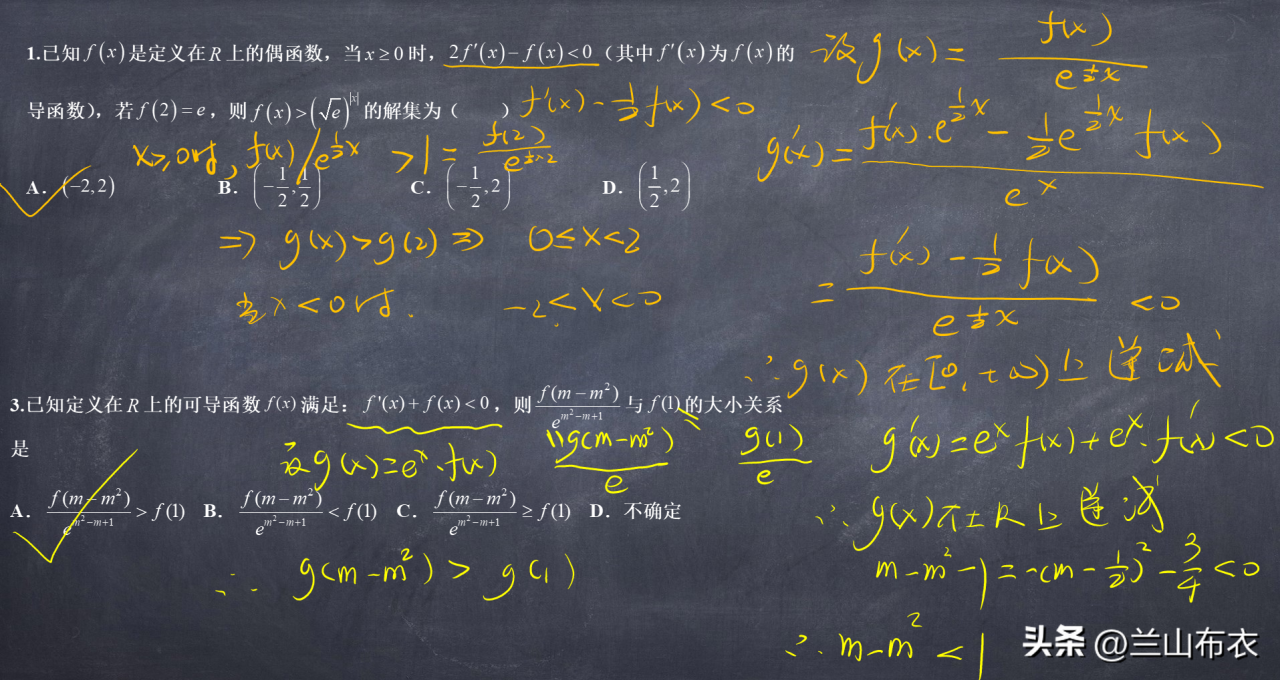 1.已知f(x)是定义在R上的偶函数，当x≥0时，2f′(x)−f(x)<0（其中f′(x)为f(x)的
导函数），若f(2)=e，则f(x)>(√e)^|x|的解集为（　　）
A．(−2,2)　B．(−1/2,1/2)　C．(−1/2,2)　D．(1/2,2)
f′(x)−1/2f(x)<0
x≥0时, f(x)/e^(1/2x) >1=f(2)/e^(1/2×2)
⇒ g(x)>g(2) ⇒ 0≤x<2
当x<0时. −2<x<0
设g(x)=f(x)/e^(1/2x)
g′(x)=(f′(x)·e^(1/2x)−1/2e^(1/2x)f(x))/e^x
=(f′(x)−1/2f(x))/e^(1/2x) <0
∴g(x)在[0,+∞)上单减
3.已知定义在R上的可导函数f(x)满足：f′(x)+f(x)<0，则f(m−m²)/e^(m²−m+1)与f(1)的大小关系
是
设g(x)=e^x·f(x)
"g(m−m²)/e
"g(1)/e
A．f(m−m²)/e^(m²−m+1)>f(1)　B．f(m−m²)/e^(m²−m+1)<f(1)　C．f(m−m²)/e^(m²−m+1)≥f(1)　D．不确定
∴ g(m−m²)>g(1)
g′(x)=e^x f(x)+e^x·f′(x)<0
∴g(x)在R上单减
m−m²−1=−(m−1/2)²−3/4<0
∴m−m²<1
头条 @兰山布衣